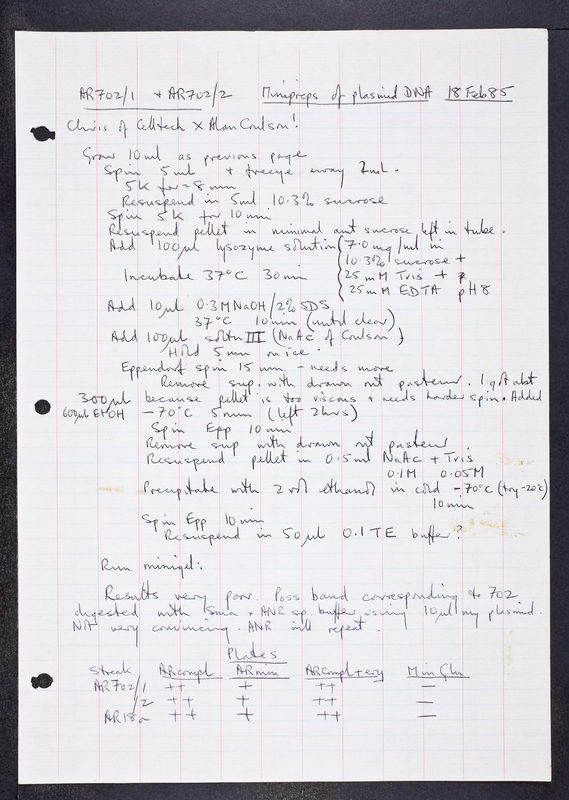 AR702/1 + AR702/2 Minipreps of plasmid DNA 18 Feb 85
Chris of Celltech X Alan Coulson!
Grow 10ml as previous page
Spin 5ml + freeze away 2ml.
5K for ~8 min
Resuspend in 5ml 10.3% sucrose
Spin 5K for 10 min
Resuspend pellet in minimal amt sucrose left in tube.
Add 100µl lysozyme solution { 7.0mg/ml in
10.3% sucrose +
Incubate 37°C 30min 25mM Tris +
25mM EDTA pH8
Add 10µl 0.3M NaOH/2% SDS
37°C 10min (until clear)
Add 100µl soltn III (NaAc of Coulson)
Hold 5min on ice.
Eppendorf spin 15 min - needs more
Remove sup. with drawn out pasteur. I got abt
300µl because pellet is too viscous + needs harder spin. Added
600µl EtOH -70°C 5min (left 2hrs)
Spin Epp 10min
Remove sup with drawn out pasteur.
Resuspend pellet in 0.5ml NaAc + Tris
0.1M 0.05M
Precipitate with 2 vol ethanol in cold -70°C (try -20°C)
10min
Spin Epp 10min
Resuspend in 50µl 0.1 TE buffer?
Run minigel:
Results very poor. Poss band corresponding to 702
digested with Sma + ANR sp. buffer using 10µl my plasmid.
Not very convincing. ANR will repeat.
Plates
Streak ARcompl ARmin ARcompl+ery Min Glu
AR702/1 ++ + ++ —
/2 ++ + ++ —
AR18a ++ + ++ —